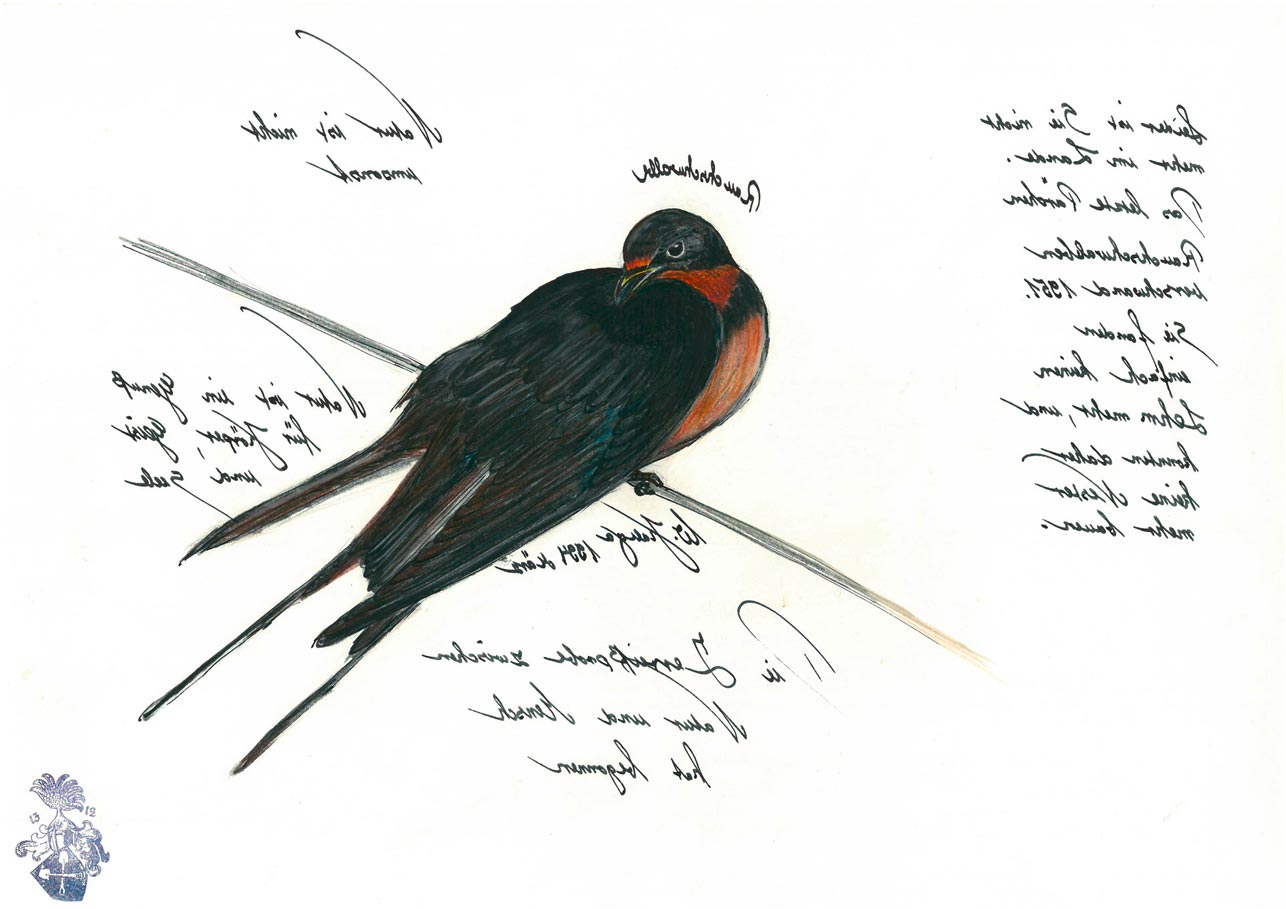 Natur ist nicht
umsonst
Rauchschwalbe
Leider ist Sie nicht
mehr im Lande.
Das letzte Pärchen
Rauchschwalben
verschwand 1951.
Sie fanden
einfach keinen
Lehm mehr, und
konnten daher
keine Nester
mehr bauen.
Natur ist ein Genuß
für Körper, Geist
und Seele
W. 1994 März
Die Zerreißprobe zwischen
Natur und Mensch
hat begonnen
13 12